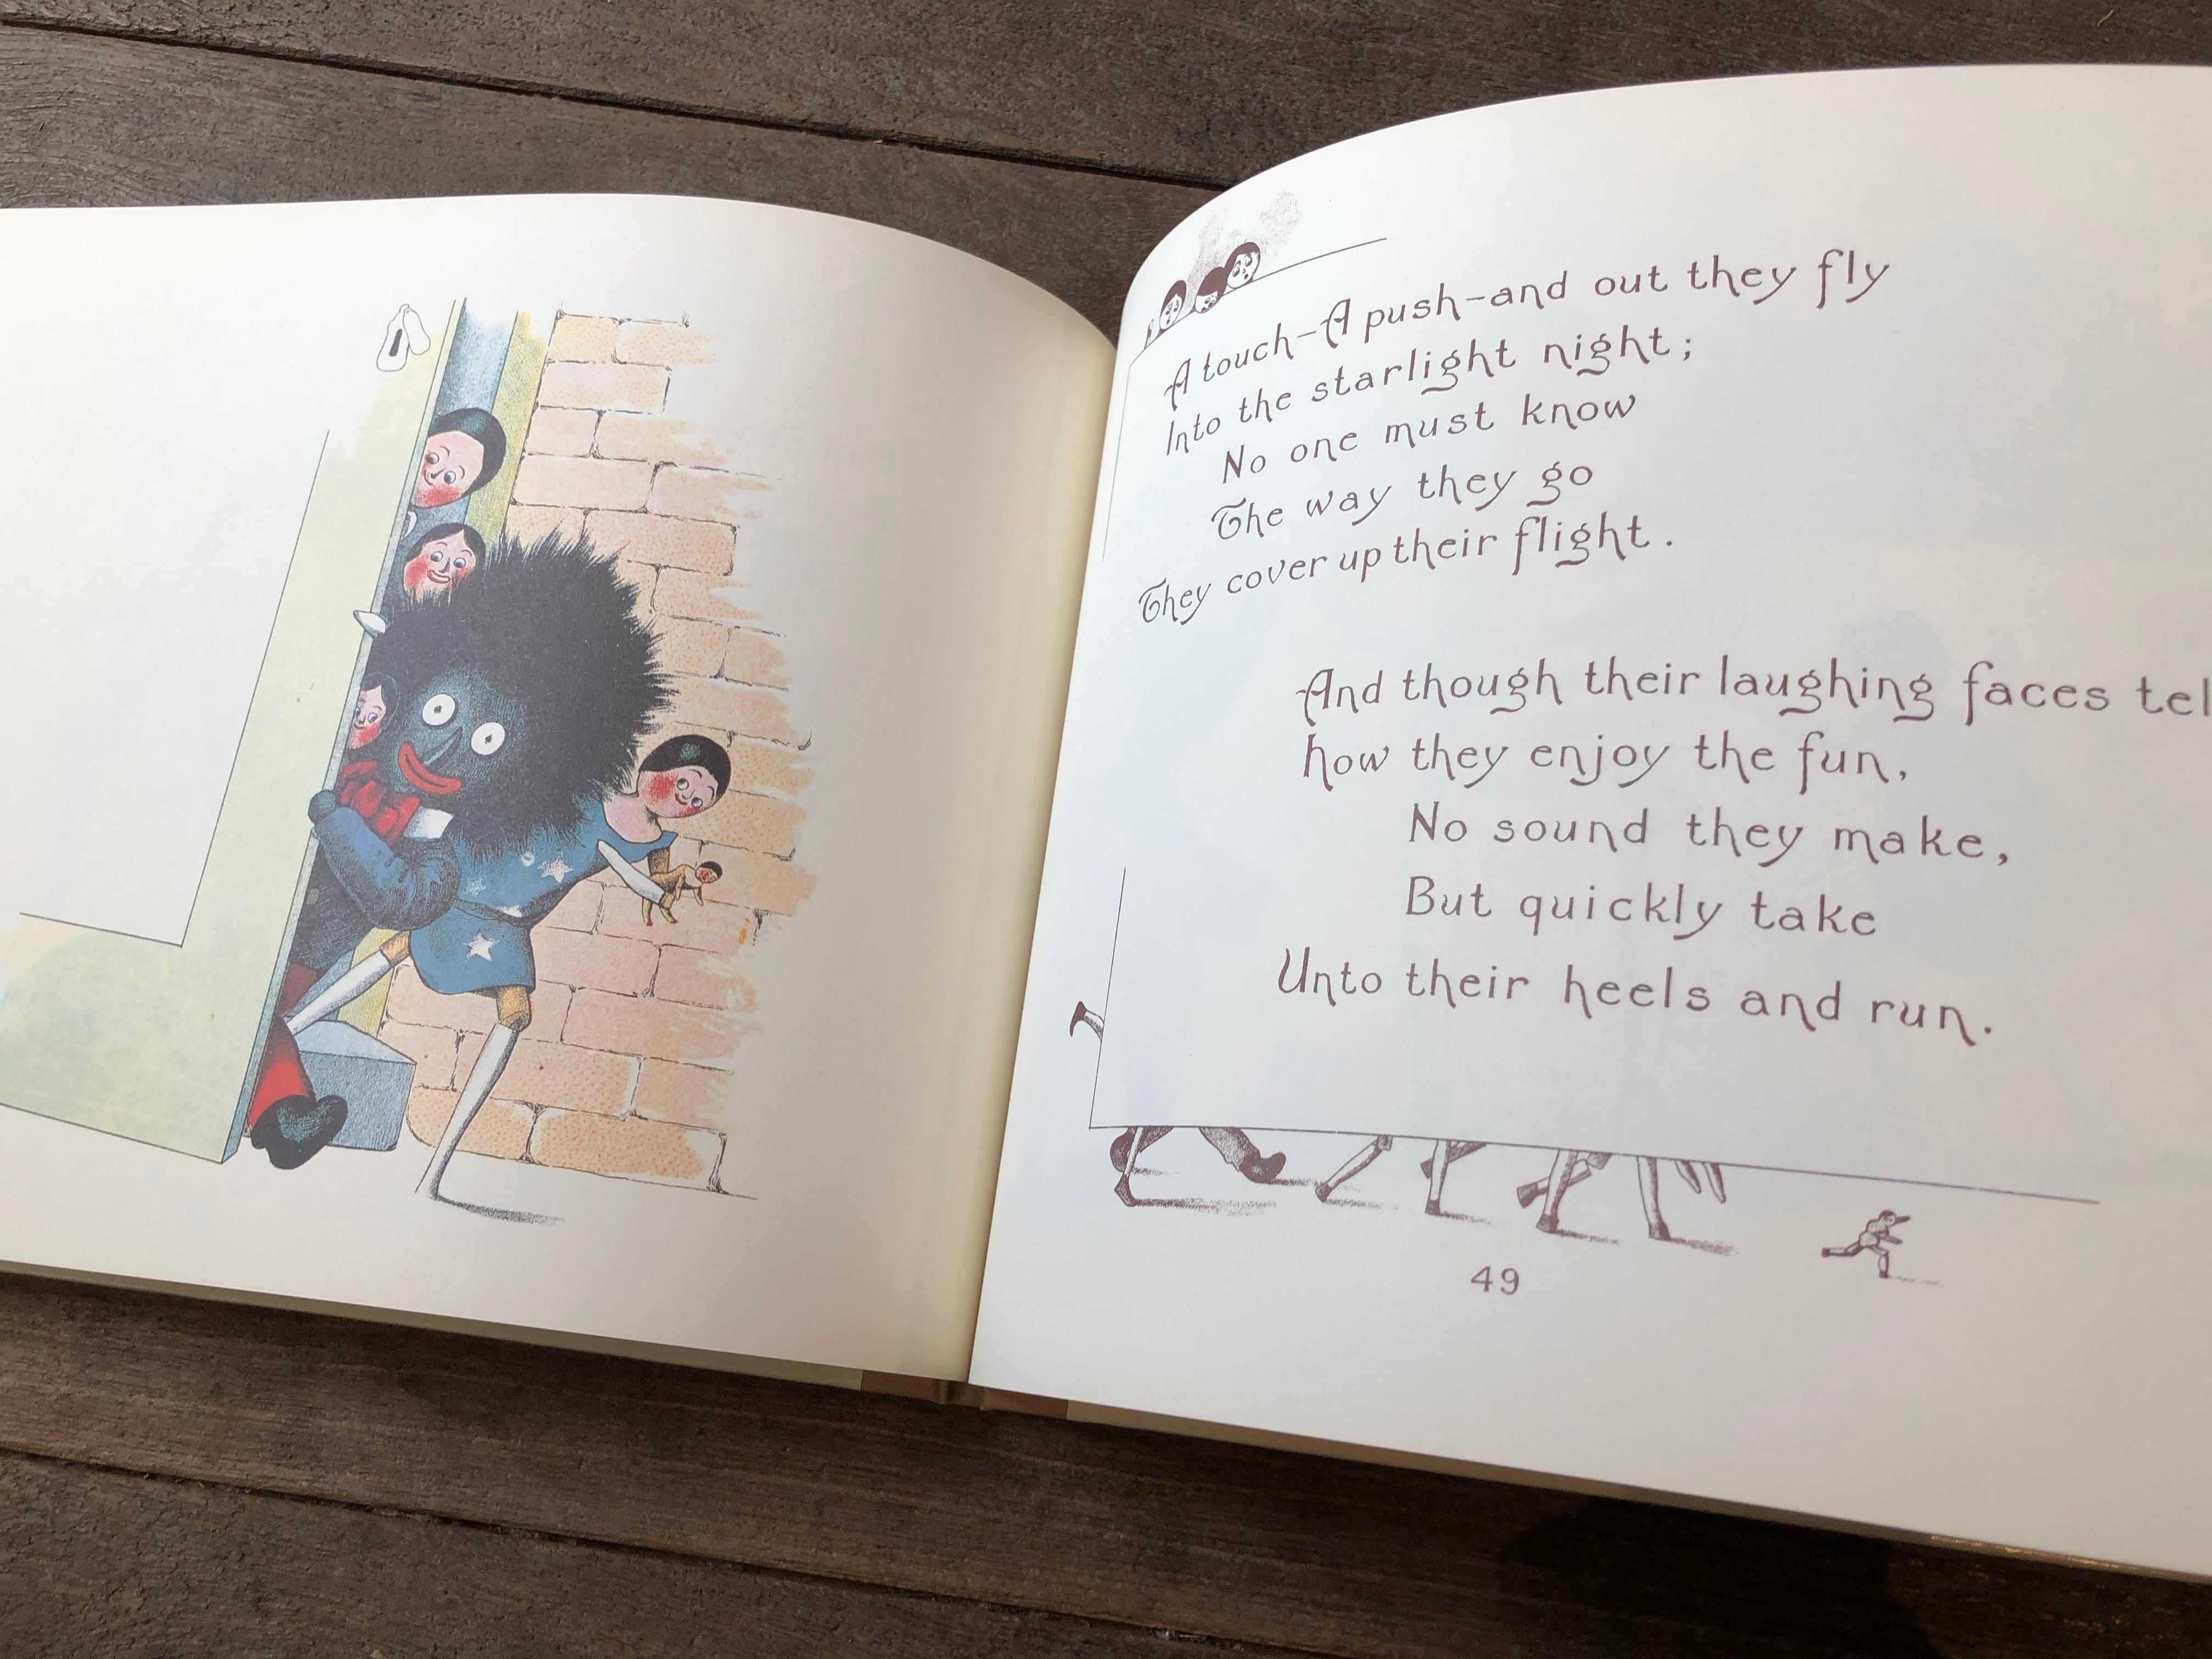 A touch-A push-and out they fly
Into the starlight night;
No one must know
The way they go
They cover up their flight.
And though their laughing faces tel
how they enjoy the fun,
No sound they make,
But quickly take
Unto their heels and run.
49